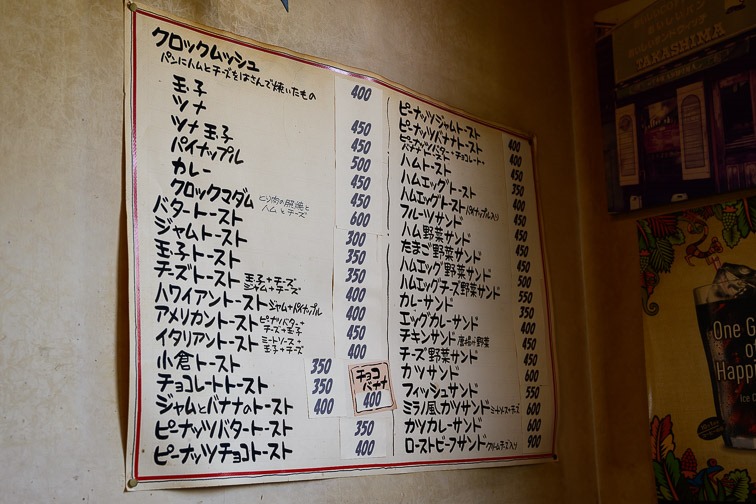 クロックムッシュ
パンにハムとチーズをはさんで焼いたもの 400
玉子
ツナ 450
ツナ玉子 450
パイナップル 500
カレー 450
クロックマダム とり肉の照焼と ハムとチーズ 450
バタートースト 600
ジャムトースト 300
玉子トースト 350
チーズトースト 玉子+チーズ ジャム+チーズ 350
ハワイアントースト ジャム+パイナップル 400
アメリカントースト ピーナツバター+ チーズ+玉子 400
イタリアントースト ミートソース+ 玉子+チーズ 450
400
小倉トースト 350
チョコレートトースト 350
ジャムとバナナのトースト 400
チョコ
バナナ
400
ピーナッツバタートースト 350
ピーナッツチョコトースト 400
ピーナッツジャムトースト 400
ピーナッツバナナトースト 400
ピーナッツバター+チョコレート+
バナナトースト 450
ハムトースト 350
ハムエッグトースト 400
ハムエッグトースト パイナップル入り 450
フルーツサンド 450
ハム野菜サンド 450
たまご野菜サンド 450
ハムエッグ野菜サンド 500
ハムエッグチーズ野菜サンド 550
カレーサンド 350
エッグカレーサンド 400
チキンサンド 唐揚げ野菜 450
チーズ野菜サンド 450
カツサンド 550
フィッシュサンド 550
ミラノ風カツサンド ミートソース+チーズ 600
カツカレーサンド 600
ローストビーフサンド クリームチーズ入り 900
TAKASHIMA
One G
of
Happ
Ice C